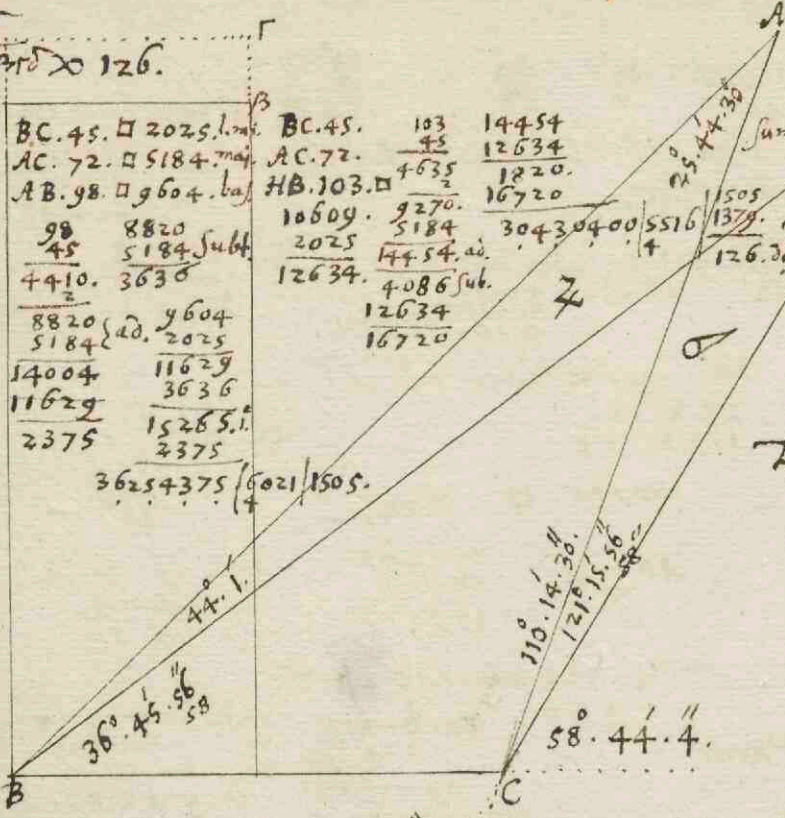 Γ
A
∞ 126.
β
BC. 45. □ 2025.
AC. 72. □ 5184. maj.
AB. 98. □ 9604. bas
98
45
4410.
2
8820
5184 } ad.
14004
11629
2375
8820
5184 subt.
3636
9604
2025
11629
3636
15265.
2375
36254375 (6021 | 1505.
4
BC. 45.
AC. 72.
HB. 103. □
10609.
2025
12634.
103
45
4635
2
9270.
5184
14454. ad.
4086 sub.
12634
16720
14454
12634
1820.
16720
30430400 | 5516 | 1505
4
1379.
126.
25°. 44'. 30"
♃
44°. 1'.
36°. 45'. 56"
58
110°. 14'. 30".
121°. 15'. 56"
58"
58°. 44'. 4".
B
C